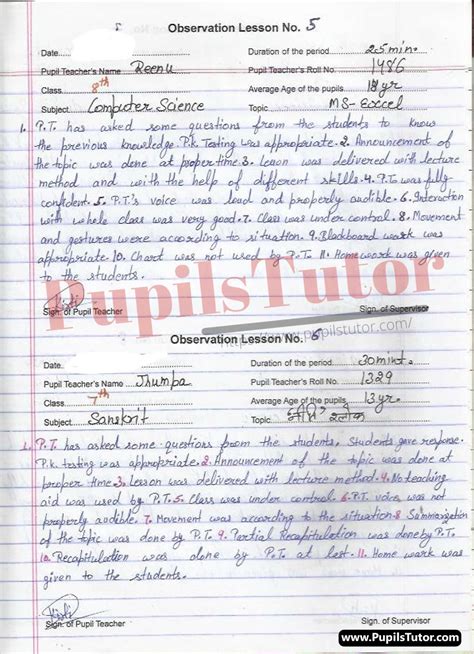 Observation Lesson No. 5
Date.................... Duration of the period 25 min.
Pupil Teacher's Name Reenu Pupil Teacher's Roll No. 1486
Class 8th Average Age of the pupils 18 yr
Subject Computer Science Topic MS-Excel
1. P.T. has asked some questions from the students to know
the previous knowledge P.k. Testing was appropriate. 2. Announcement of
the topic was done at proper time. 3. Lesson was delivered with lecture
method and with the help of different skills. 4. P.T. was fully
confident. 5. P.T.'s voice was loud and properly audible. 6. Interaction
with whole class was very good. 7. Class was under control. 8. Movement
and gestures were according to situation. 9. Blackboard work was
appropriate 10. Chart was not used by P.T. 11. Home work was given
to the students.
PupilsTutor
Sign. of Pupil Teacher Sign. of Supervisor
https://www.pupilstutor.com/
Observation Lesson No. 6
Date.................... Duration of the period 30 mint.
Pupil Teacher's Name Jhumpa Pupil Teacher's Roll No. 1329
Class 7th Average Age of the pupils 13 yr.
Subject Sanskrit Topic नीति श्लोक
1. P.T. has asked some questions from the students. Students gave response.
P.k. testing was appropriate. 2. Announcement of the topic was done at
proper time. 3. Lesson was delivered with lecture method. 4. No teaching
aid was used by P.T. 5. Class was under control. 6. P.T. voice was not
properly audible. 7. Movement was according to the situation 8. Summarization
of the topic was done by P.T. 9. Partial Recapitulation was done by P.T.
10. Recapitulation was done by P.T. at last. 11. Home work was
given to the students.
Sign. of Pupil Teacher Sign. of Supervisor
www.PupilsTutor.com